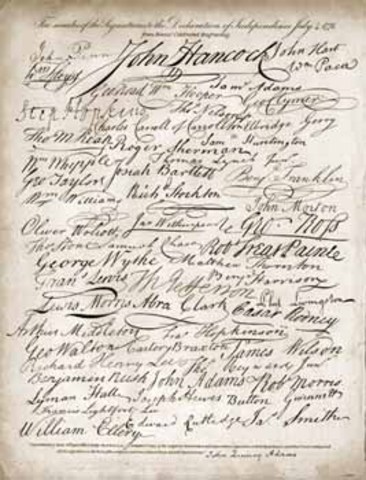 Fac similes of the Signatures to the Declaration of Independence July 4 1776
John Penn John Hancock John Hart
Wm Paca
Geo Read Wm Hooper Saml Adams
Geo Clymer
Step Hopkins Thos Nelson
Charles Carroll of Carrollton Elbridge Gerry
Tho M:Kean Roger Sherman Saml Huntington
Wm Whipple Thomas Lynch Junr
Geo Taylor Josiah Bartlett Benj Franklin
Wm Williams Richd Stockton
John Morton
Oliver Wolcott Jno Witherspoon Geo Ross
Thos Stone Samuel Chase Robt Treat Paine
George Wythe Matthew Thornton
Frans Lewis Th Jefferson Benj Harrison
Lewis Morris Abra Clark Caesar Rodney
Arthur Middleton Fras Hopkinson
Geo Walton Carter Braxton James Wilson
Richard Henry Lee Thos Heyward Junr
Benjamin Rush John Adams Robt Morris
Lyman Hall Joseph Hewes Button Gwinnett
Francis Lightfoot Lee
William Ellery Edward Rutledge Jas Smith
John Quincy Adams